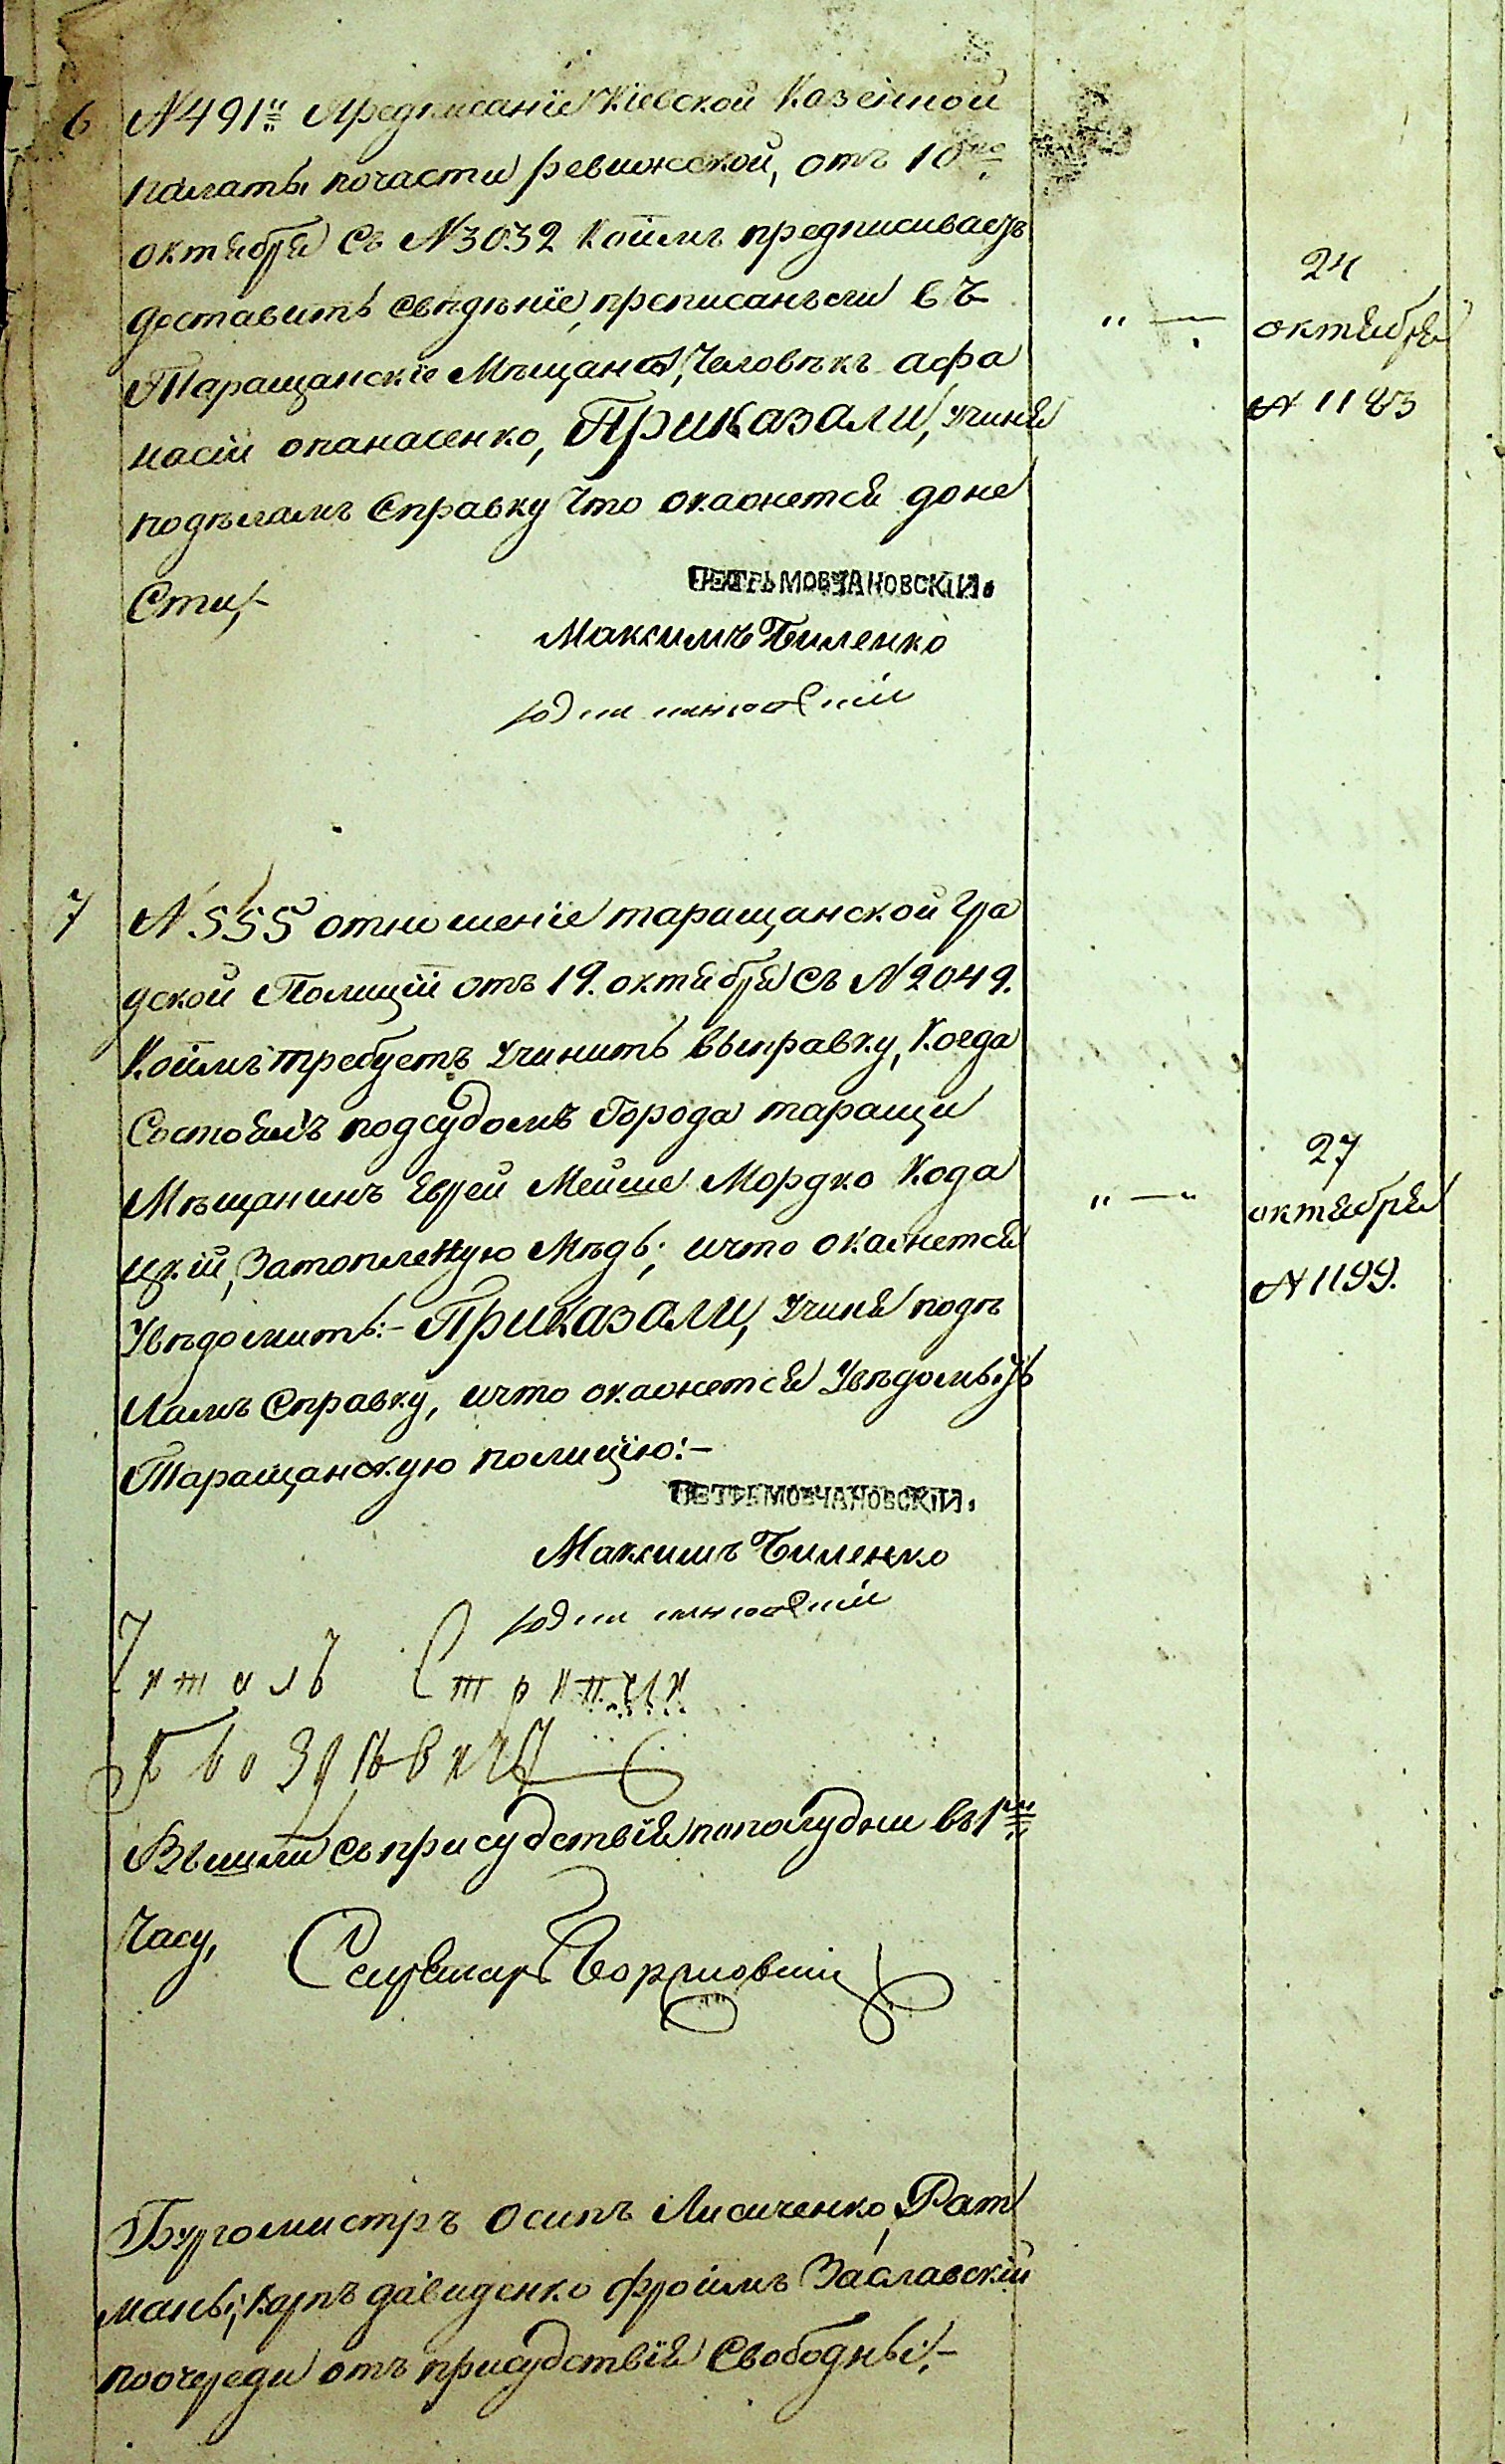 6 N 491й Предписаніе Кіевской Казенной
палаты почасти ревижской, отъ 10го
октября съ N 3032 Коимъ предписываетъ
доставить сведѣніе, преписанъ ли въ
Таращанскіе Мѣщаны, Человѣкъ афа
насій опанасенко, Приказали, учиня
подѣламъ Справку что окажется доне
сти,-
24
октября
N 1183
ПЕТРЪ МОВЧАНОВСКІЙ.
Максимъ Биленко
7 N 555 отношеніе таращанской гра
дской Полиціи отъ 19. октября съ N 2049.
Коимъ требуетъ учинить выправку, Когда
Состоялъ подсудомъ Города таращи
Мѣщанинъ Еврей Мейше Мордко Кода
цкій, Затопленую Мѣдь; ичто окажется
увѣдомить:- Приказали, учиня подѣ
ламъ Справку, ичто окажется увѣдомить
Таращанскую полицію:-
27
октября
N 1199.
ПЕТРЪ МОВЧАНОВСКІЙ.
Максимъ Биленко
Читалъ Стряпчій
Вышли съприсудствія пополудни въ 1м
Часу,
Секретарь
Бургомистръ Осипъ Лисиченко, Рат
маны, Карпъ давиденко фроимъ Заславскій
поочереди отъ присудствія Свободны:-